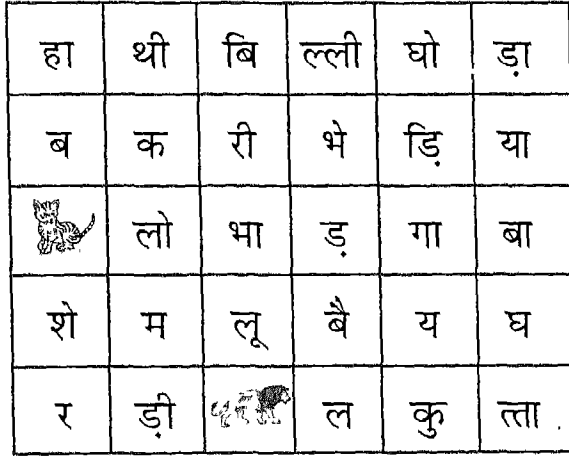 हा थी बि ल्ली घो ड़ा
ब क री भे ड़ि या
लो भा ड़ गा बा
शे म लू बै य घ
र ड़ी ल कु त्ता